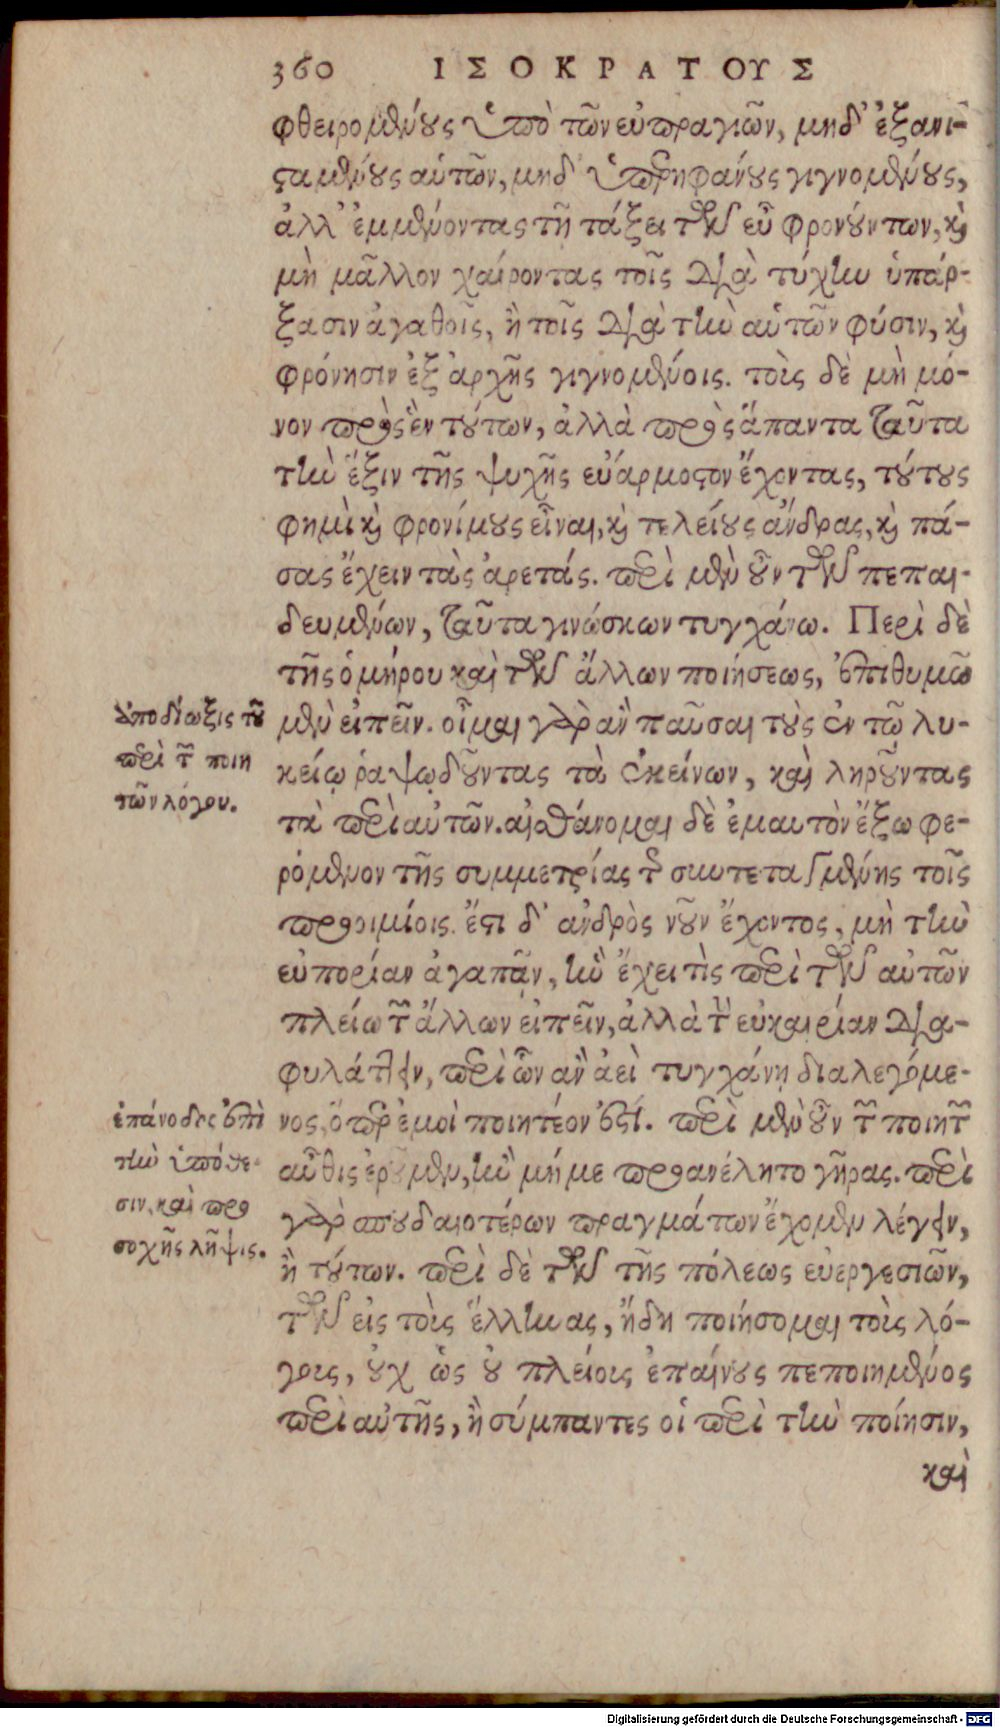 360 ΙΣΟΚΡΑΤΟΥΣ
φθειρομένους ὑπὸ τῶν εὐπραγιῶν, μηδ' ἐξανι-
σταμένους αὑτῶν, μηδ' ὑπερηφάνους γιγνομένους,
ἀλλ' ἐμμένοντας τῇ τάξει τῶν εὖ φρονούντων, καὶ
μὴ μᾶλλον χαίροντας τοῖς διὰ τύχην ὑπάρ-
ξασιν ἀγαθοῖς, ἢ τοῖς διὰ τὴν αὑτῶν φύσιν, καὶ
φρόνησιν ἐξ ἀρχῆς γιγνομένοις. τοὺς δὲ μὴ μό-
νον πρὸς ἓν τούτων, ἀλλὰ πρὸς ἅπαντα ταῦτα
τὴν ἕξιν τῆς ψυχῆς εὐάρμοστον ἔχοντας, τούτους
φημὶ καὶ φρονίμους εἶναι, καὶ τελείους ἄνδρας, καὶ πά-
σας ἔχειν τὰς ἀρετάς. περὶ μὲν οὖν τῶν πεπαι-
δευμένων, ταῦτα γινώσκων τυγχάνω. Περὶ δὲ
τῆς ὁμήρου καὶ τῶν ἄλλων ποιήσεως, ἐπιθυμῶ
μὲν εἰπεῖν. οἶμαι γὰρ ἂν παῦσαι τοὺς ἐν τῷ λυ-
κείῳ ῥαψῳδοῦντας τὰ ἐκείνων, καὶ ληροῦντας
τὰ περὶ αὐτῶν. αἰσθάνομαι δὲ ἐμαυτὸν ἔξω φε-
ρόμενον τῆς συμμετρίας τῆς συντεταγμένης τοῖς
προοιμίοις. ἔστι δ' ἀνδρὸς νοῦν ἔχοντος, μὴ τὴν
εὐπορίαν ἀγαπᾷν, ἣν ἔχει τὶς περὶ τῶν αὐτῶν
πλείω τῶν ἄλλων εἰπεῖν, ἀλλὰ τὴν εὐκαιρίαν δια-
φυλάττειν, περὶ ὧν ἂν ἀεὶ τυγχάνῃ διαλεγόμε-
νος, ὅπερ ἐμοὶ ποιητέον ἐστί. περὶ μὲν οὖν τῶν ποιητῶν
αὖθις ἐροῦμεν, ἢν μή με προανέληται γῆρας. περὶ
γὰρ σπουδαιοτέρων πραγμάτων ἔχομεν λέγειν,
ἢ τούτων. περὶ δὲ τῶν τῆς πόλεως εὐεργεσιῶν,
τῶν εἰς τοὺς ἕλληνας, ἤδη ποιήσομαι τοὺς λό-
γους, οὐχ ὡς οὐ πλείους ἐπαίνους πεποιημένος
περὶ αὐτῆς, ἢ σύμπαντες οἱ περὶ τὴν ποίησιν,
καὶ
ἀποδίωξις τοῦ
περὶ τῶν ποιη
τῶν λόγου.
ἐπάνοδος ἐπὶ
τὴν ὑπόθε-
σιν, καὶ προ
σοχῆς λῆψις.
Digitalisierung gefördert durch die Deutsche Forschungsgemeinschaft - DFG